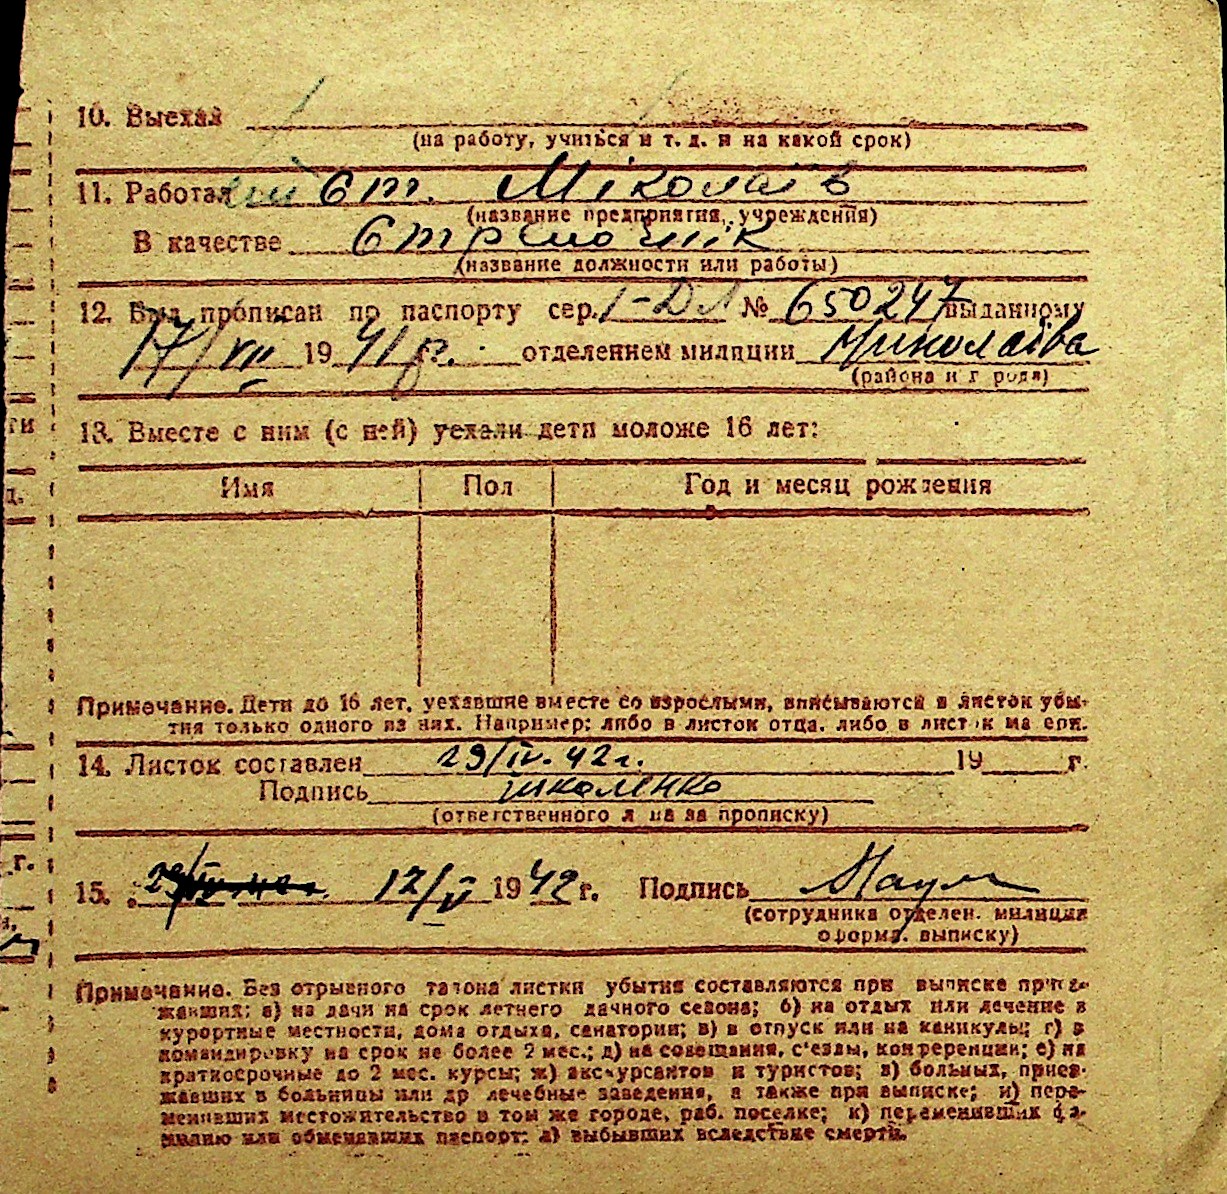 10. Выехал
(на работу, учиться и т. д. и на какой срок)
11. Работал ст. Міколаїв
(название предприятия, учреждения)
В качестве Стрелочнік
(название должности или работы)
12. Был прописан по паспорту сер. І-ДЛ № 650247 выданному
17/VII 1941 г. отделением милиции Миколаїва
(района и города)
13. Вместе с ним (с ней) уехали дети моложе 16 лет:
Имя Пол Год и месяц рождения
Примечание. Дети до 16 лет, уехавшие вместе со взрослыми, вписываются в листок убы-
тия только одного из них. Например: либо в листок отца, либо в листок матери.
14. Листок составлен 29/IV. 42 г. 19 г.
Подпись Школенко
(ответственного лица за прописку)
15. 29/IV 42 г. 12/V 1942 г. Подпись
(сотрудника отделен. милиции
оформл. выписку)
Примечание. Без отрывного талона листки убытия составляются при выписке приез-
жавших: а) на дачи на срок летнего дачного сезона; б) на отдых или лечение в
курортные местности, дома отдыха, санатории; в) в отпуск или на каникулы; г) в
командировку на срок не более 2 мес.; д) на совещания, с'езды, конференции; е) на
краткосрочные до 2 мес. курсы; ж) экскурсантов и туристов; з) больных, приез-
жавших в больницы или др лечебные заведения, а также при выписке; и) пере-
менивших местожительство в том же городе, раб. поселке; к) переменивших фа-
милию или обменявших паспорт; л) выбывших вследствие смерти.